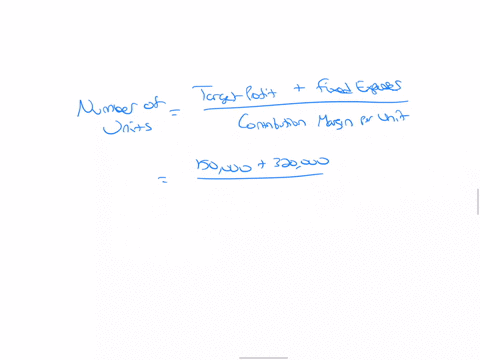 Number of Units = Target Profit + Fixed Expenses / Contribution Margin per Unit
= 150,000 + 320,000